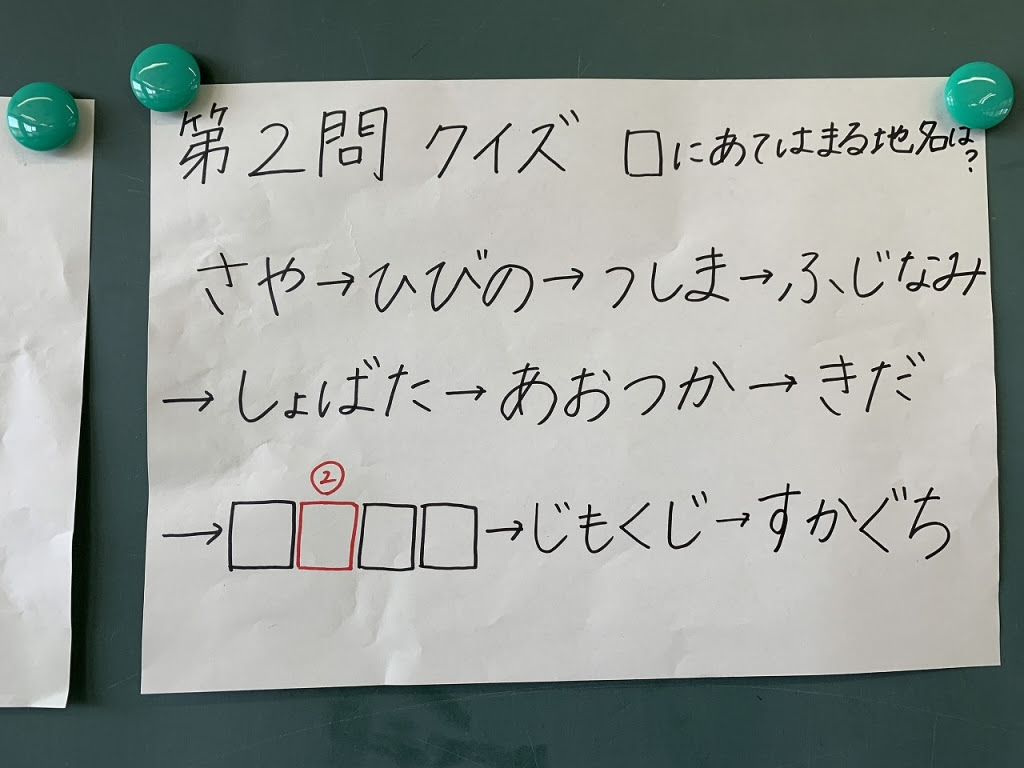 第2問 クイズ □にあてはまる地名は?
さや→ひびの→つしま→ふじなみ
→しょばた→あおつか→きだ
②
→□□□□→じもくじ→すかぐち